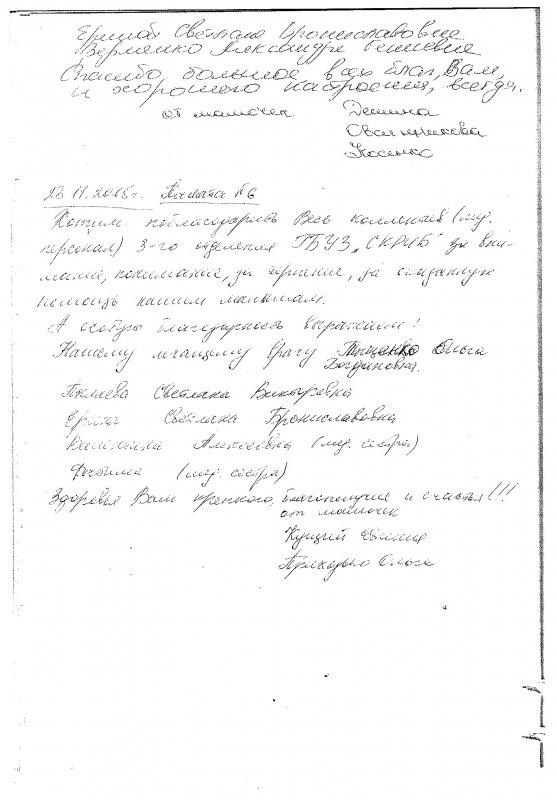 Светлане Брониславовне
Александре
Спасибо большое всех благ Вам,
и хорошего настроения, всегда.
от мамочек Демина
Овсянникова
Косенко
11.2015г. Палата №6
Хотим поблагодарить Весь коллектив (мед.
персонал) 3-го отделения ГБУЗ „СКРИБ" за вни-
мание, понимание, за терпение, за оказанную
помощь нашим малышам.
А особую благодарность выражаем!
Нашему лечащему врачу Ольга
Богдановна.
Светлана Викторовна
Светлана Брониславовна
Валентина Алексеевна (мед. сестра)
Фатима (мед. сестра)
Здоровья Вам крепкого, благополучия и счастья!!!
от мамочек
Евгения
Приходько Ольга